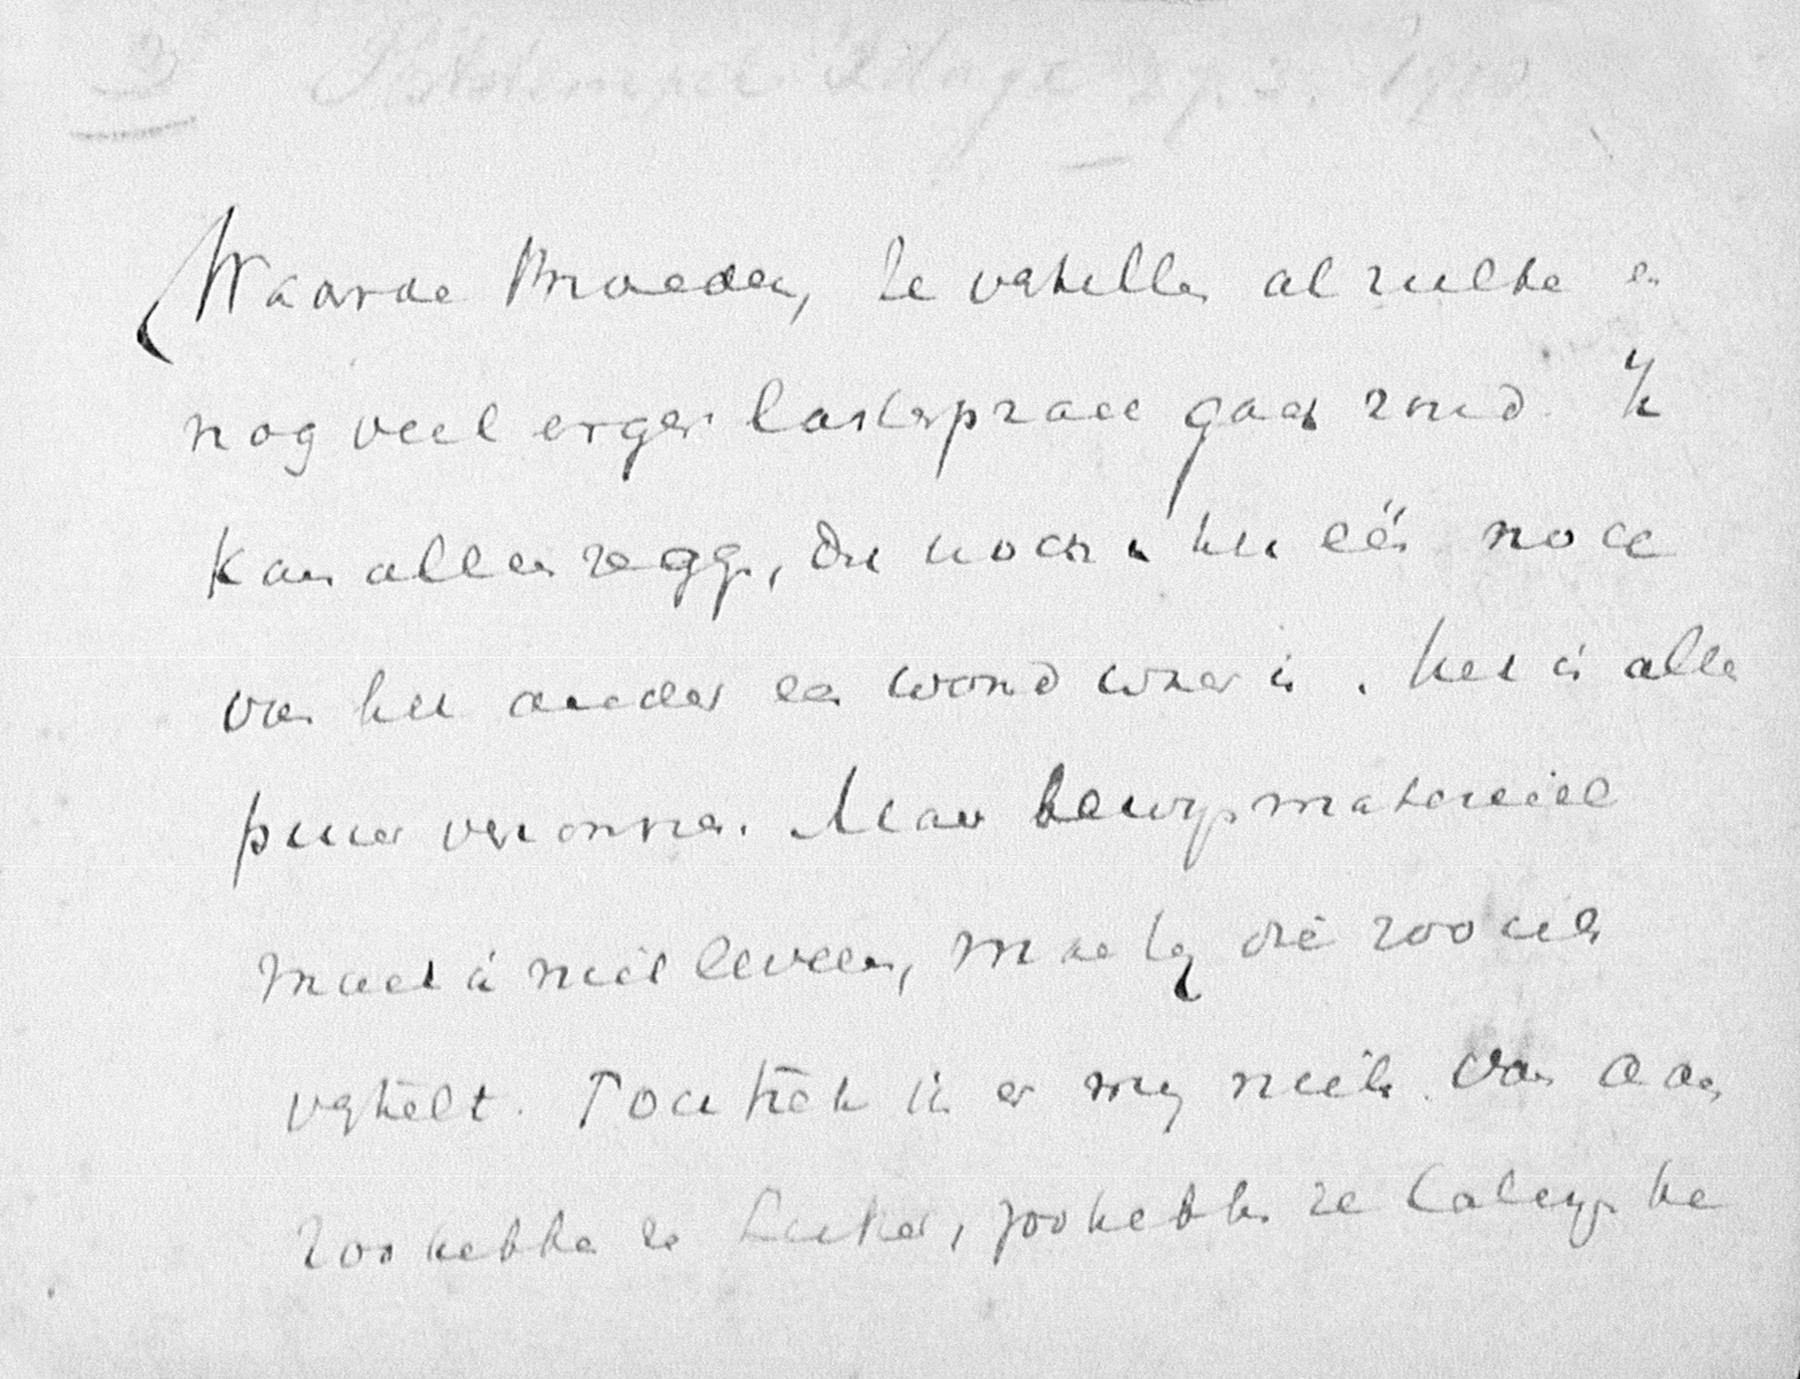 Waarde Broeder, Ze vertellen al zulke en
nog veel erger lasterpraat gaat rond. Ik
kan alleen zeggen, dat noch in het één noch
van het ander een woord waar is. Het is alles
puur verzonnen. Maar bewijsmateriaal
moet je niet leveren, maar hij die zoo iets
vertelt. Toch trek ik er mij niets van aan,
zoo hebben ze Luther, zoo hebben ze Calvijn be